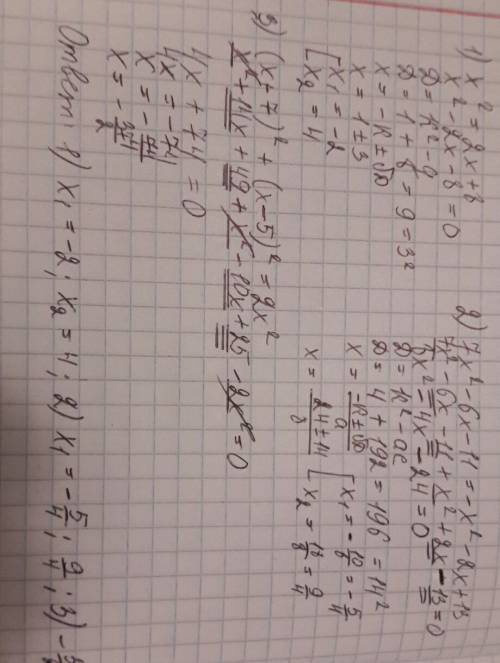 1) x² = 2x + 8
x² - 2x - 8 = 0
D = k² - q
D = 1 + 8 = 9 = 3²
x = -k ± √D
x = 1 ± 3
[ x₁ = -2
x₂ = 4
2) 7x² - 6x - 11 = -x² - 2x + 13
7x² - 6x - 11 + x² + 2x - 13 = 0
8x² - 4x - 24 = 0
D = k² - ac
D = 4 + 192 = 196 = 14²
x = -k ± √D / a
x = 2 4 ± 14 / 8
[ x₁ = - 10/8 = - 5/4
x₂ = 18/8 = 9/4
3) (x + 7)² + (x - 5)² = 2x²
x² + 14x + 49 + x² - 10x + 25 - 2x² = 0
4x + 74 = 0
4x = -74
x = - 74/4
x = - 37/2
Ответ: 1) x₁ = -2; x₂ = 4; 2) x₁ = - 5/4; 9/4; 3) -